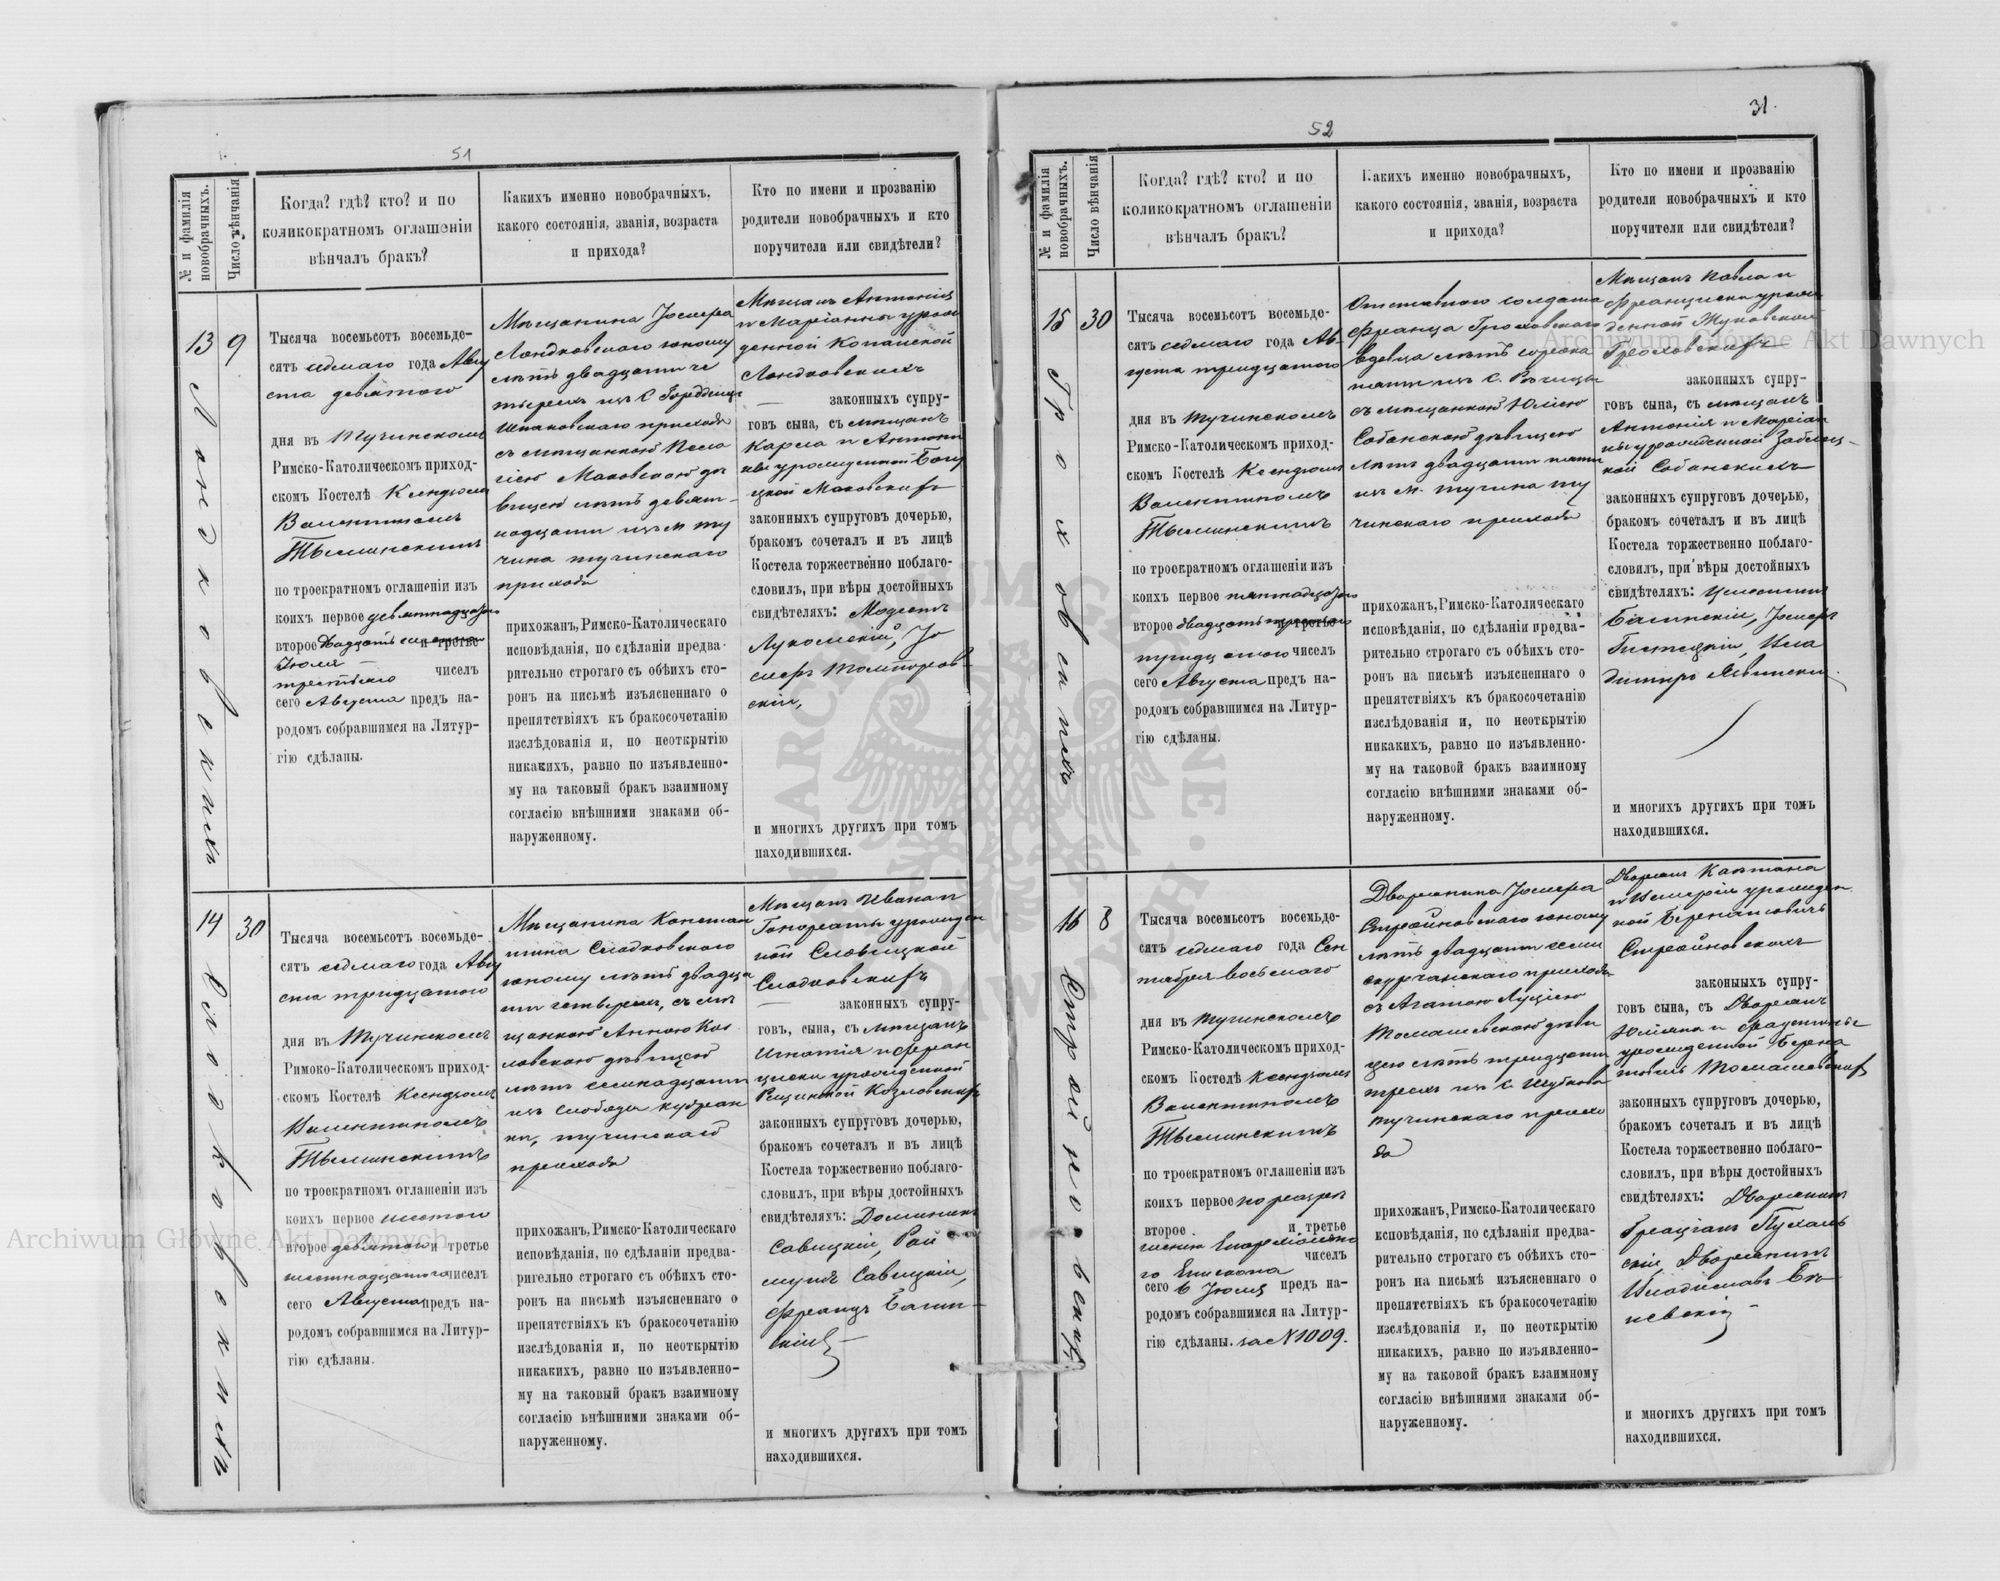 51
№ и фамилія новобрачныхъ.
Число вѣнчанія
Когда? гдѣ? кто? и по
коликократномъ оглашеніи
вѣнчалъ бракъ?
Какихъ именно новобрачныхъ,
какого состоянія, званія, возраста
и прихода?
Кто по имени и прозванію
родители новобрачныхъ и кто
поручители или свидѣтели?
13
9
Лондковскихъ
Тысяча восемьсотъ восемьде-
сятъ седмаго года Авгу
ста девятого
дня въ Тучинскомъ
Римско-Католическомъ приход-
скомъ Костелѣ Ксендзомъ
Валентиномъ
по троекратномъ оглашеніи изъ
коихъ первое девятнадцатого
второе Двадцать и третье
Іюля
третьяго чиселъ
сего Августа предъ на-
родомъ собравшимся на Литур-
гію сдѣланы.
Мѣщанина Іосифа
Лондковского юношу
лѣтъ двадцати че
тырехъ изъ с.
Шпаковского прихода
съ мѣщанкою Пела
гіею Маковскою дѣ
вицею лѣтъ девят-
надцати изъ м. Ту
чина тучинскаго
прихода
прихожанъ, Римско-Католическаго
исповѣданія, по сдѣланіи предва-
рительно строгаго съ обѣихъ сто-
ронъ на письмѣ изъясненнаго о
препятствіяхъ къ бракосочетанію
изслѣдованія и, по неоткрытію
никакихъ, равно по изъявленно-
му на таковый бракъ взаимному
согласію внѣшними знаками об-
наруженному.
Мѣщанъ Антонія
и Маріанны урож
денной
Лондковскихъ
законныхъ супру-
говъ сына, съ мѣщанъ
Карла и Антони
ны урожденной
Маковскихъ
законныхъ супруговъ дочерью,
бракомъ сочеталъ и въ лицѣ
Костела торжественно поблаго-
словилъ, при вѣры достойныхъ
свидѣтеляхъ: Модестъ
Лукомскій, Іо
сифъ
скій,
и многихъ другихъ при томъ
находившихся.
14
30
Сладковскихъ
Тысяча восемьсотъ восемьде-
сятъ седмаго года Авгу
ста тридцатого
дня въ Тучинскомъ
Римоко-Католическомъ приход-
скомъ Костелѣ Ксендзомъ
Валентиномъ
по троекратномъ оглашеніи изъ
коихъ первое
второе девятого и третье
шестнадцатого чиселъ
сего Августа предъ на-
родомъ собравшимся на Литур-
гію сдѣланы.
Мѣщанина Констан
тина Сладковского
юношу лѣтъ двадца
ти четырехъ, съ мѣ
щанкою Анною Коз
ловскою дѣвицею
лѣтъ семнадцати
изъ слободы
тучинскаго
прихода
прихожанъ, Римско-Католическаго
исповѣданія, по сдѣланіи предва-
рительно строгаго съ обѣихъ сто-
ронъ на письмѣ изъясненнаго о
препятствіяхъ къ бракосочетанію
изслѣдованія и, по неоткрытію
никакихъ, равно по изъявленно-
му на таковый бракъ взаимному
согласію внѣшними знаками об-
наруженному.
Мѣщанъ Ивана и
Гонораты урожден
ной
Сладковскихъ
законныхъ супру-
говъ, сына, съ мѣщанъ
Игнатія и Фран
циски урожденной
Козловскихъ
законныхъ супруговъ дочерью,
бракомъ сочеталъ и въ лицѣ
Костела торжественно поблаго-
словилъ, при вѣры достойныхъ
свидѣтеляхъ: Доминикъ
Савицкій, Рай
мундъ Савицкій,
Францъ Багин-
скій
и многихъ другихъ при томъ
находившихся.
52
31.
№ и фамилія новобрачныхъ.
Число вѣнчанія
Когда? гдѣ? кто? и по
коликократномъ оглашеніи
вѣнчалъ бракъ?
Какихъ именно новобрачныхъ,
какого состоянія, званія, возраста
и прихода?
Кто по имени и прозванію
родители новобрачныхъ и кто
поручители или свидѣтели?
15
30
Гроховскихъ
Тысяча восемьсотъ восемьде-
сятъ седмаго года Ав-
густа тридцатого
дня въ Тучинскомъ
Римско-Католическомъ приход-
скомъ Костелѣ Ксендзомъ
Валентиномъ
по троекратномъ оглашеніи изъ
коихъ первое пятнадцатого
второе двадцать и третье
тридцатого чиселъ
сего Августа предъ на-
родомъ собравшимся на Литур-
гію сдѣланы.
Отставного солдата
Франца Гроховского
вдовца лѣтъ сорока
пяти изъ с. Речицы
съ мѣщанкою Юліею
Собанскою дѣвицею
лѣтъ двадцати пяти
изъ м. Тучина ту
чинскаго прихода
прихожанъ, Римско-Католическаго
исповѣданія, по сдѣланіи предва-
рительно строгаго съ обѣихъ сто-
ронъ на письмѣ изъясненнаго о
препятствіяхъ къ бракосочетанію
изслѣдованія и, по неоткрытію
никакихъ, равно по изъявленно-
му на таковой бракъ взаимному
согласію внѣшними знаками об-
наруженному.
Мѣщанъ Павла и
Франциски урож
денной Жуковской
Гроховскихъ
законныхъ супру-
говъ сына, съ мѣщанъ
Антонія и Маріан
ны урожденной Заблоц-
кой Собанскихъ
законныхъ супруговъ дочерью,
бракомъ сочеталъ и въ лицѣ
Костела торжественно поблаго-
словилъ, при вѣры достойныхъ
свидѣтеляхъ: Целестинъ
Багинскій, Іосифъ
Вла
димиръ
и многихъ другихъ при томъ
находившихся.
16
8
Стройновскихъ
Тысяча восемьсотъ восемьде-
сятъ седмаго года Сен
тября восьмаго
дня въ Тучинскомъ
Римско-Католическомъ приход-
скомъ Костелѣ Ксендзомъ
Валентиномъ
по троекратномъ оглашеніи изъ
коихъ первое по разрѣ
второе и третье
шенію Епархіально
чиселъ
го Епископа
сего 6 Іюля предъ на-
родомъ собравшимся на Литур-
гію сдѣланы. за N 1009.
Дворянина Іосифа
Стройновского юношу
лѣтъ двадцати семи
скурчанского прихода
съ Агатою Луціею
Томашевскою дѣви
цею лѣтъ тридцати
трехъ изъ с. Шубкова
тучинскаго прихо
да
прихожанъ, Римско-Католическаго
исповѣданія, по сдѣланіи предва-
рительно строгаго съ обѣихъ сто-
ронъ на письмѣ изъясненнаго о
препятствіяхъ къ бракосочетанію
изслѣдованія и, по неоткрытію
никакихъ, равно по изъявленно-
му на таковой бракъ взаимному
согласію внѣшними знаками об-
наруженному.
Дворянъ Каетана
и урожден
ной
Стройновскихъ
законныхъ супру-
говъ сына, съ Дворянъ
Юліяна и Фаустины
урожденной
Томашевскихъ
законныхъ супруговъ дочерью,
бракомъ сочеталъ и въ лицѣ
Костела торжественно поблаго-
словилъ, при вѣры достойныхъ
свидѣтеляхъ: Дворянинъ
Граціанъ Пухаль
скій, Дворянинъ
Владиславъ
невскій
и многихъ другихъ при томъ
находившихся.
Archiwum Główne Akt Dawnych
Archiwum Główne Akt Dawnych